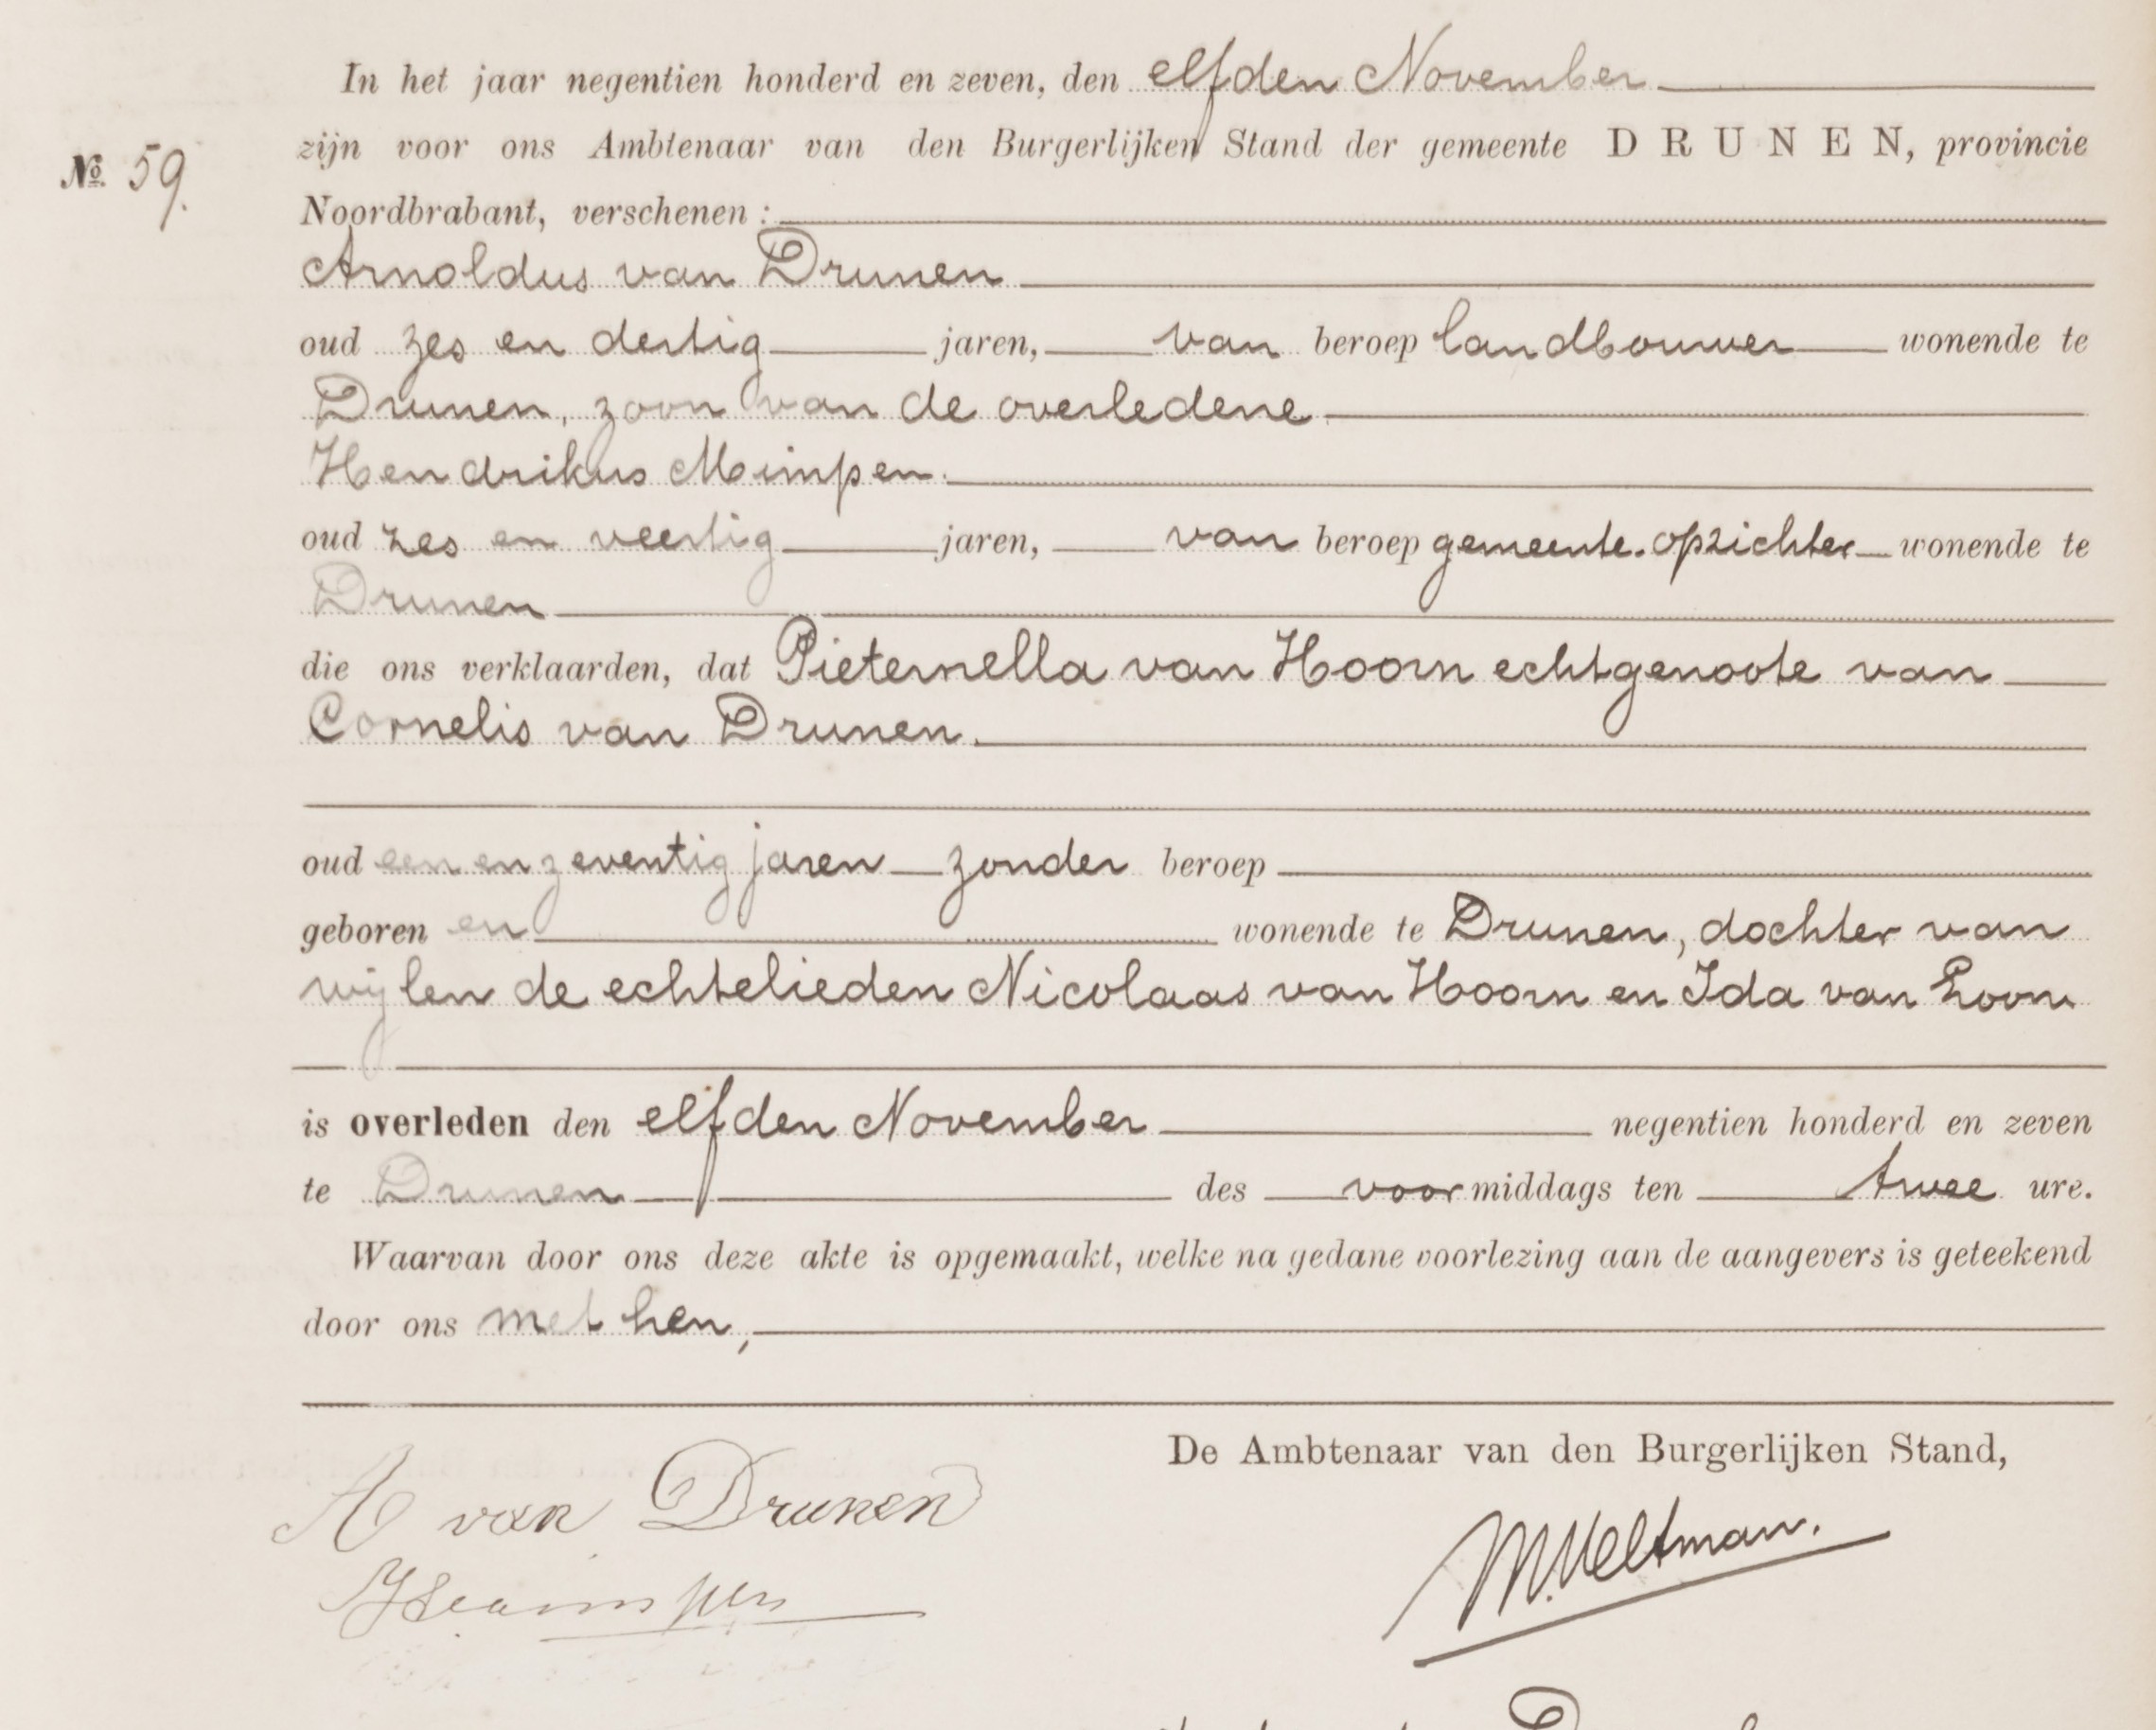 In het jaar negentien honderd en zeven, den elfden November
zijn voor ons Ambtenaar van den Burgerlijken Stand der gemeente DRUNEN, provincie
No. 59.
Noordbrabant, verschenen :
Arnoldus van Drunen
oud zes en dertig jaren, van beroep landbouwer wonende te
Drunen, zoon van de overledene
Hendrikus Mimpen.
oud zes en veertig jaren, van beroep gemeente-opzichter wonende te
Drunen
die ons verklaarden, dat Pieternella van Hoorn echtgenoote van
Cornelis van Drunen.
oud een en zeventig jaren zonder beroep
geboren en wonende te Drunen, dochter van
wijlen de echtelieden Nicolaas van Hoorn en Ida van Loon
is overleden den elfden November negentien honderd en zeven
te Drunen des voormiddags ten twee ure.
Waarvan door ons deze akte is opgemaakt, welke na gedane voorlezing aan de aangevers is geteekend
door ons met hen,
De Ambtenaar van den Burgerlijken Stand,
A van Drunen
M. Veltman.